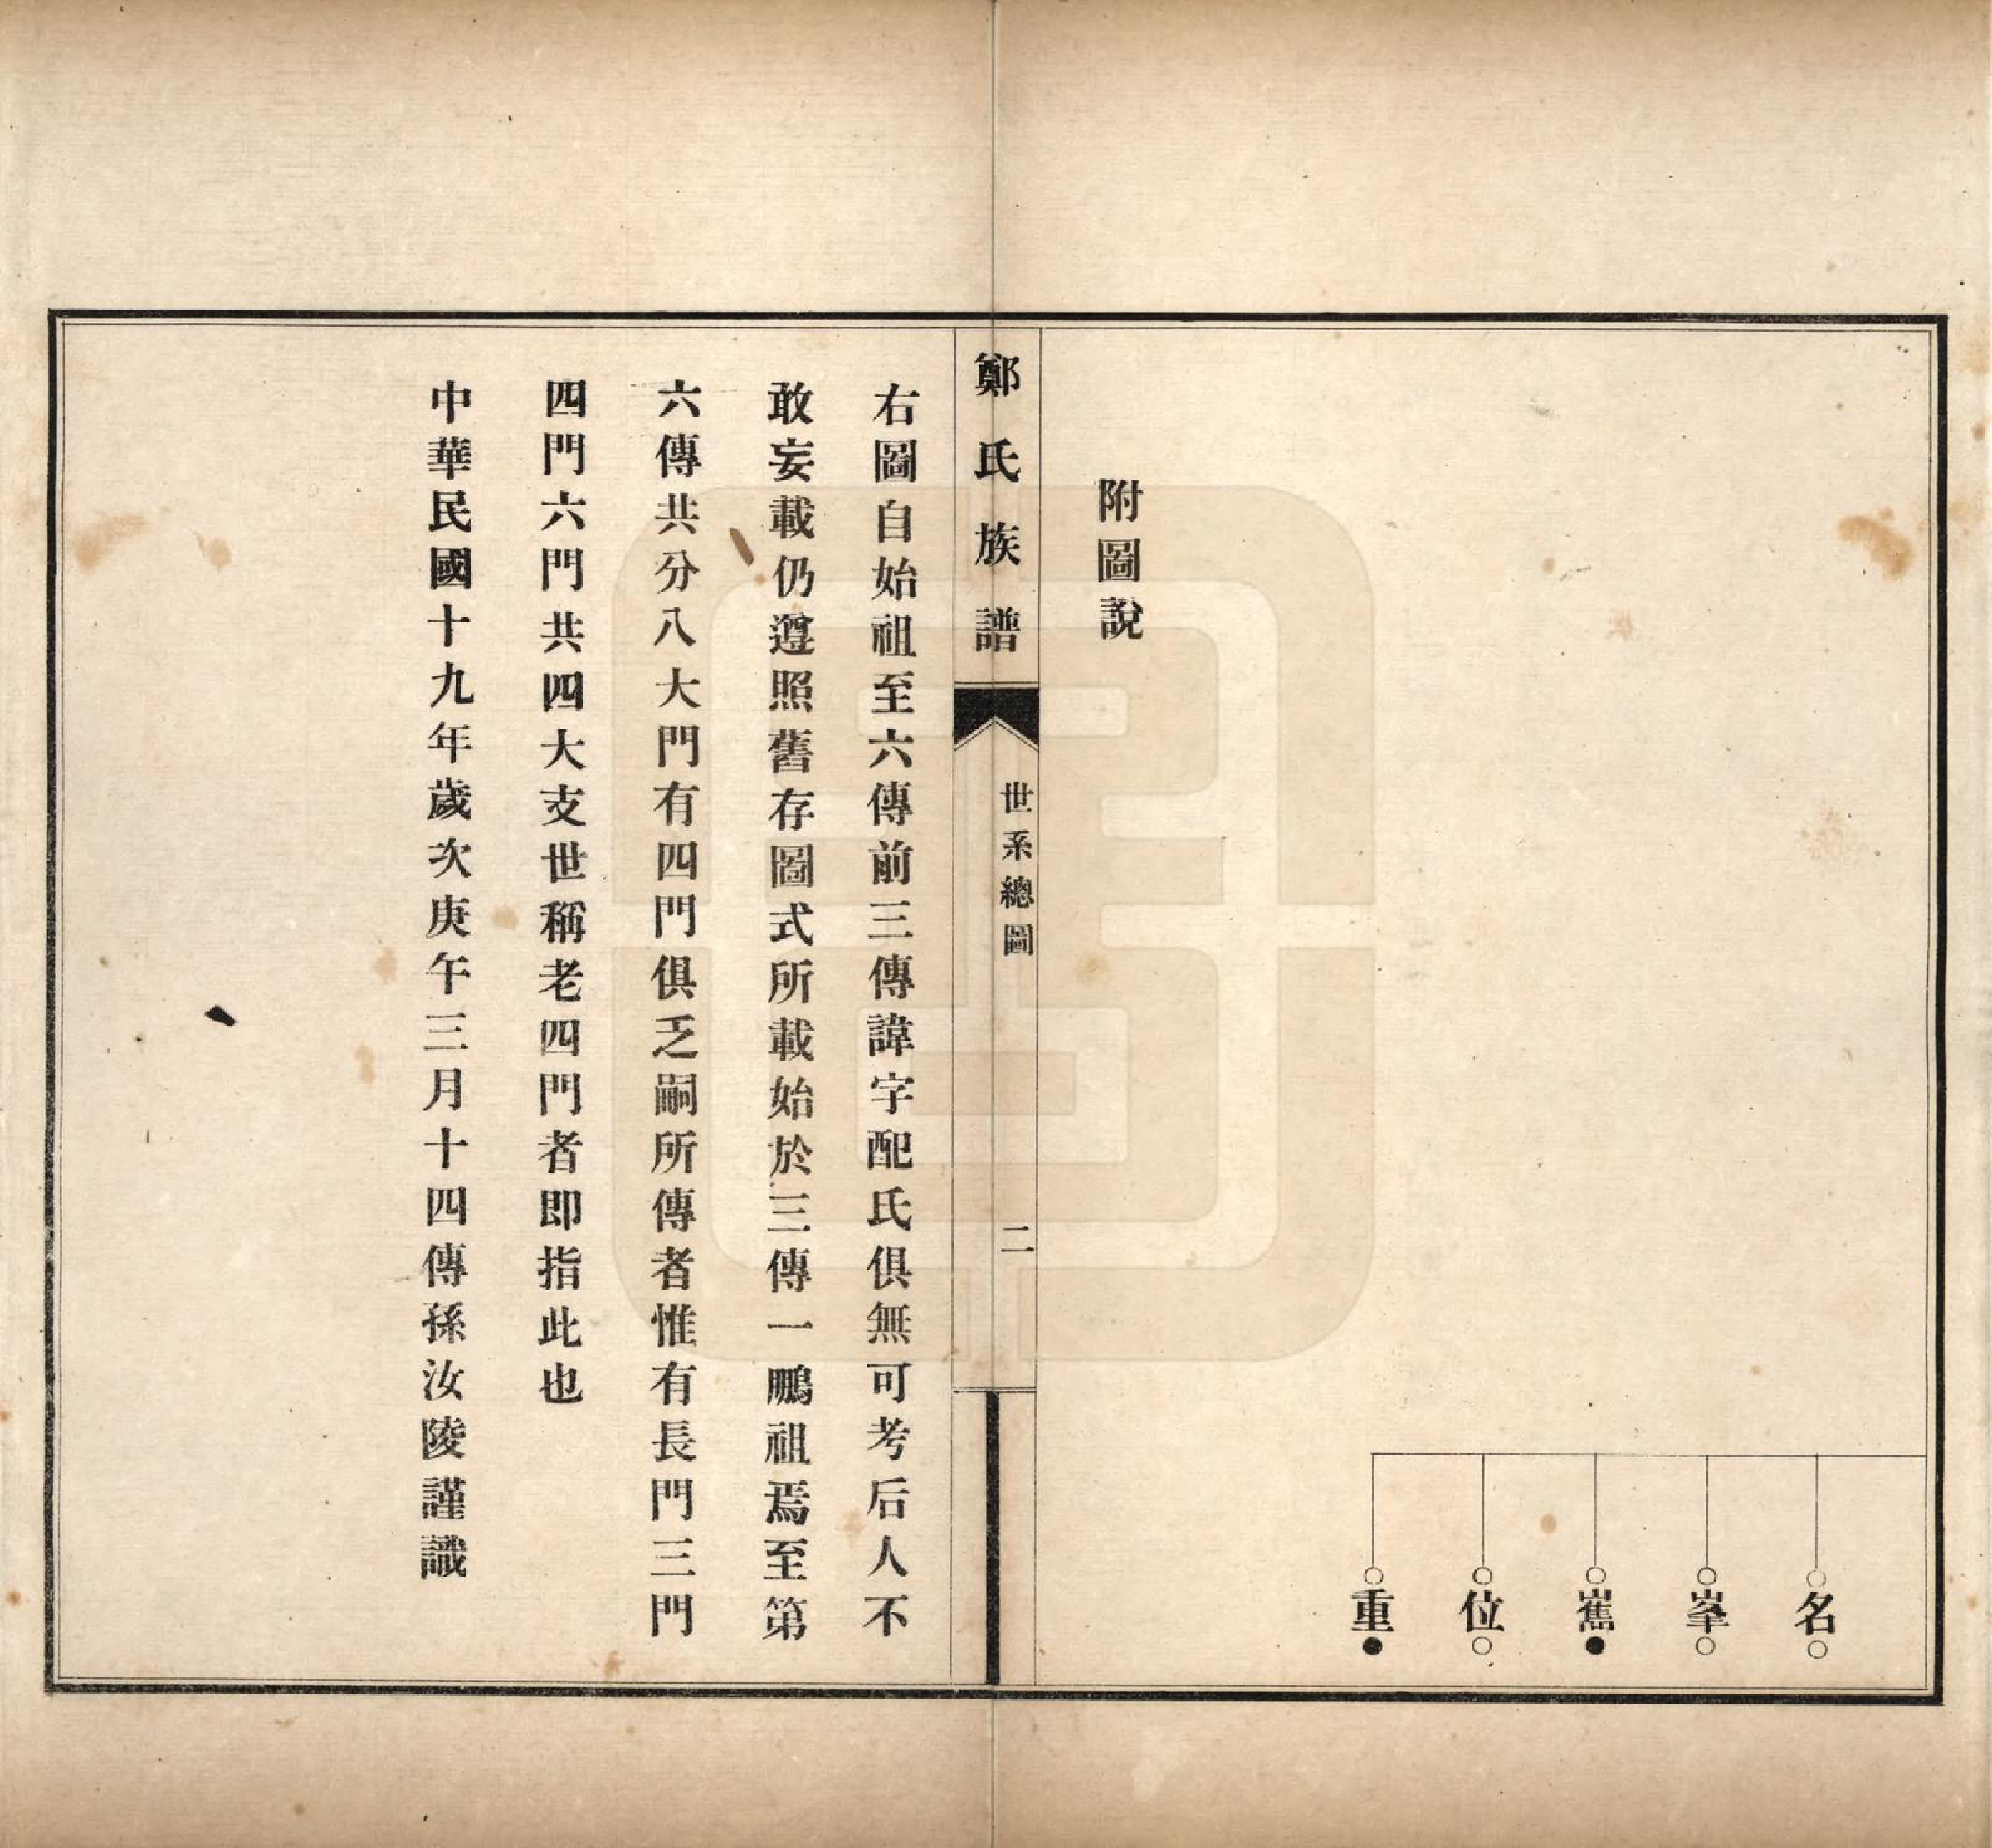 名
峯
蕉
位
重
附圖說
鄭氏族譜
世系總圖
二
右圖自始祖至六傳前三傳諱字配氏俱無可考后人不
敢妄載仍遵照舊存圖式所載始於三傳一鵬祖焉至第
六傳共分八大門有四門俱乏嗣所傳者惟有長門三門
四門六門共四大支世稱老四門者即指此也
中華民國十九年歲次庚午三月十四傳孫汝陵謹識